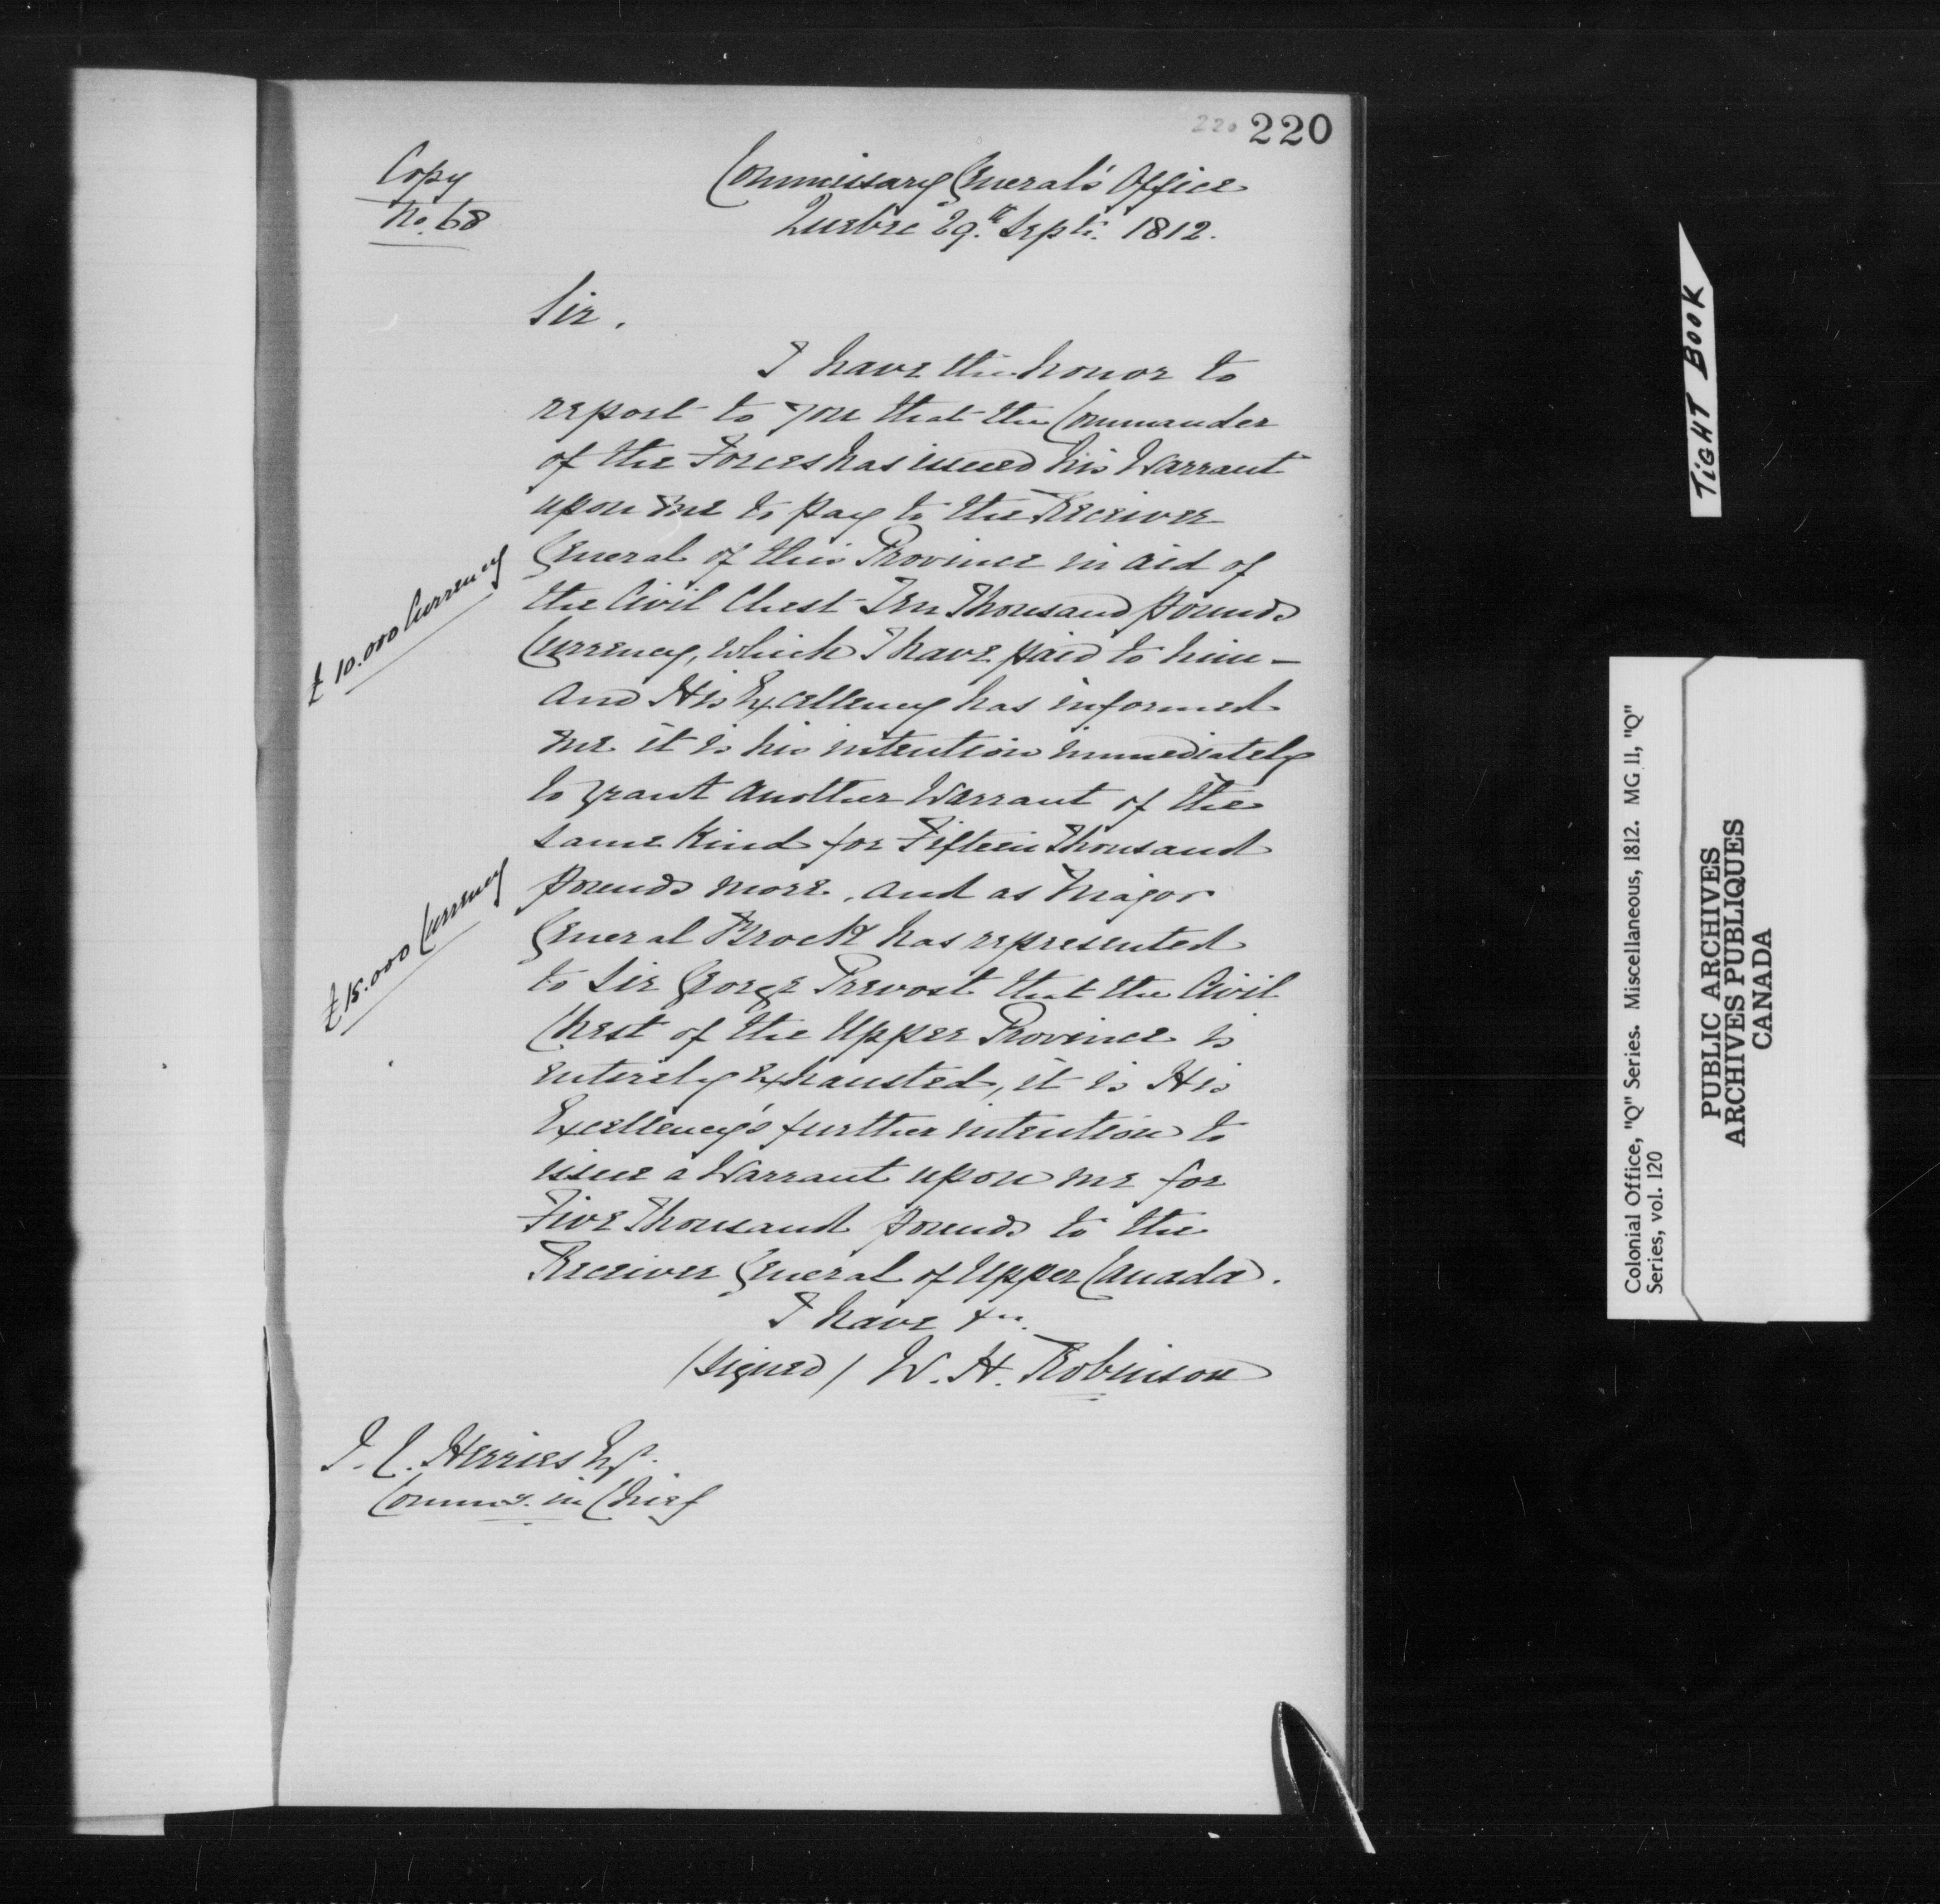 220 220
Copy
No. 68
Commissary General's Office
Quebec 29th Septr. 1812.
Sir,
I have the honor to
report to you that the Commander
of the Forces has issued his Warrant
upon me to pay to the Receiver
General of this Province in aid of
the Civil Chest Ten Thousand pounds
£10.000 Currency
Currency, which I have paid to him —
and His Excellency has informed
me it is his intention immediately
to grant another Warrant of the
same kind for Fifteen Thousand
pounds more, and as Major
£15.000 Currency
General Brock has represented
to Sir George Prevost that the Civil
Chest of the Upper Province is
entirely exhausted, it is His
Excellency's further intention to
issue a Warrant upon me for
Five Thousand pounds to the
Receiver General of Upper Canada.
I have &c.
(signed) W. H. Robinson
J. C. Herries Esqr.
Commy. in Chief
TIGHT BOOK
Colonial Office, "Q" Series. Miscellaneous, 1812. MG 11, "Q"
Series, vol. 120
PUBLIC ARCHIVES
ARCHIVES PUBLIQUES
CANADA